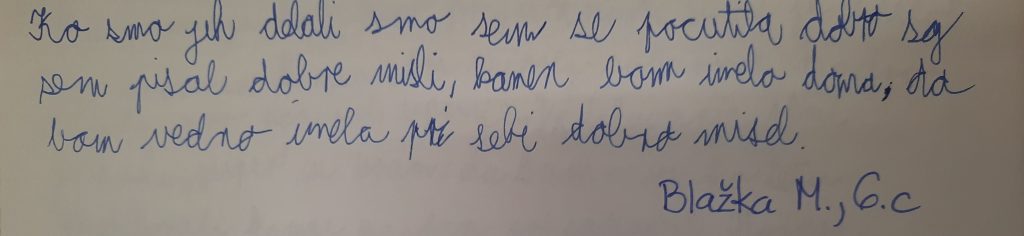 Ko smo jih delali smo sem se pocutila dobro saj
sem pisal dobre misli, kamen bom imela doma, da
bom vedno imela pri sebi dobro misel.
Blažka M., 6.c